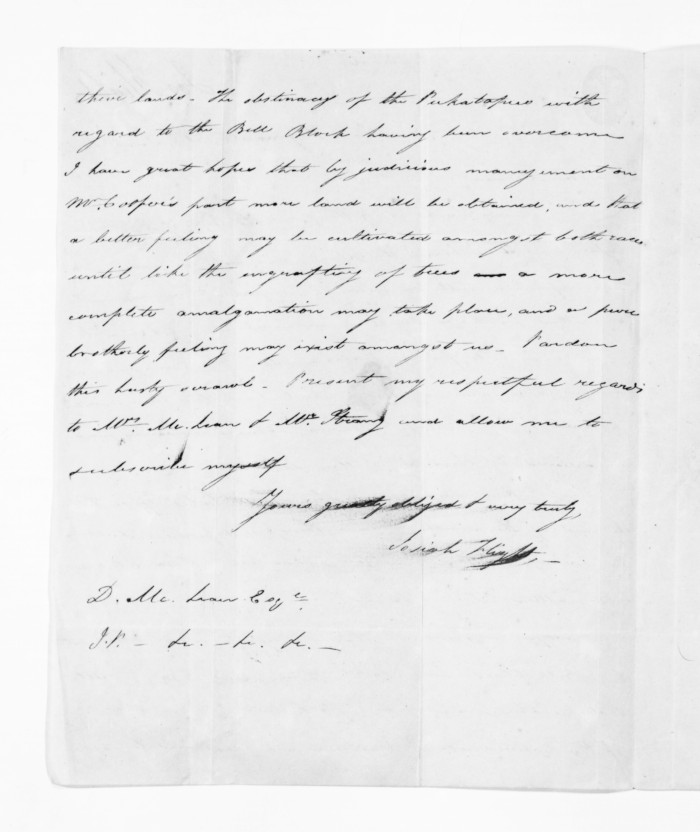 their lands - The obstinacy of the Puketapus with
regard to the Bell Block having been overcome
I have great hopes that by judicious management on
Mr. Cooper's part more land will be obtained, and that
a better feeling may be cultivated amongst both races
until like the engrafting of trees a more
complete amalgamation may take place, and a pure
brotherly feeling may exist amongst us - Pardon
this hasty scrawl - Present my respectful regards
to Mrs. Mc.Lean & Mr. Strang and allow me to
subscribe myself
Yours greatly obliged & very truly
Josiah Flight -
D. Mc. Lean Esqre.
J.P. - &c. - &c. &c. -